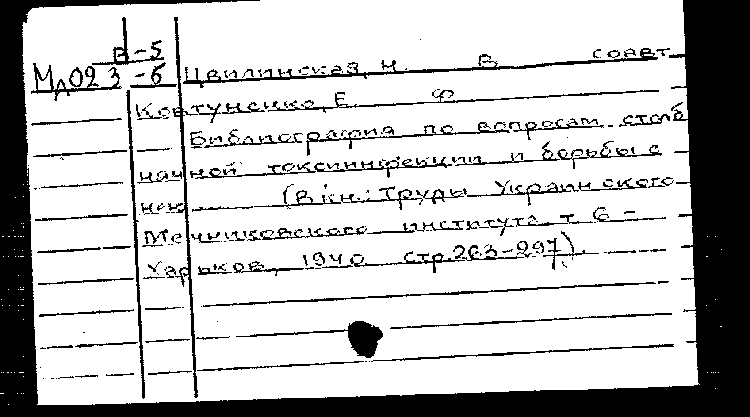 В-5
Мл02 3-6 Цвилинская, Н. В соавт
Ковтуненко, Е. Ф
Библиография по вопросам столб
нячной токсиинфекции и борьбы с
нею (В кн.: Труды Украинского
Мечниковского института т. 6-
Харьков, 1940 стр. 263-297).